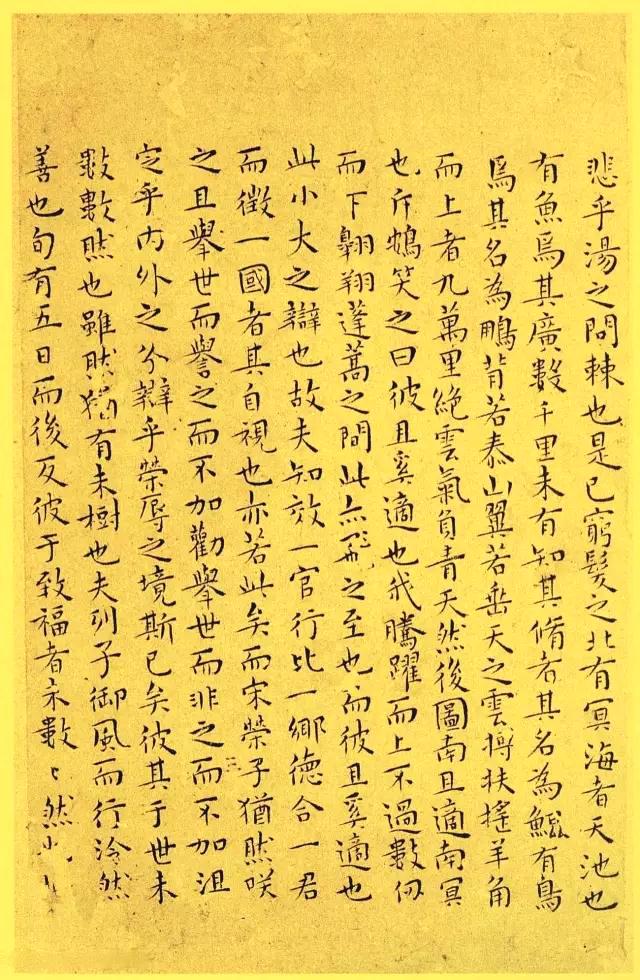 悲乎湯之問棘也是已窮髮之北有冥海者天池也
有魚焉其廣數千里未有知其脩者其名為鯤有鳥
焉其名為鵬背若泰山翼若垂天之雲摶扶搖羊角
而上者九萬里絶雲氣負青天然後圖南且適南冥
也斥鴳笑之曰彼且奚適也我騰躍而上不過數仞
而下翱翔蓬蒿之間此亦飛之至也而彼且奚適也
此小大之辯也故夫知效一官行比一鄉德合一君
而徵一國者其自視也亦若此矣而宋榮子猶然咲
之且舉世而譽之而不加勸舉世而非之而不加沮
定乎內外之分辯乎榮辱之境斯已矣彼其于世未
數數然也雖然猶有未樹也夫列子御風而行泠然
善也旬有五日而後反彼于致福者未數〻然也